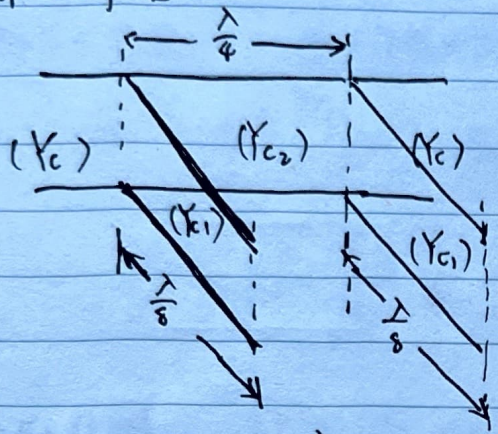 λ/4
(Yc) (Yc2) (Yc)
(Yc1) (Yc1)
λ/8 λ/8